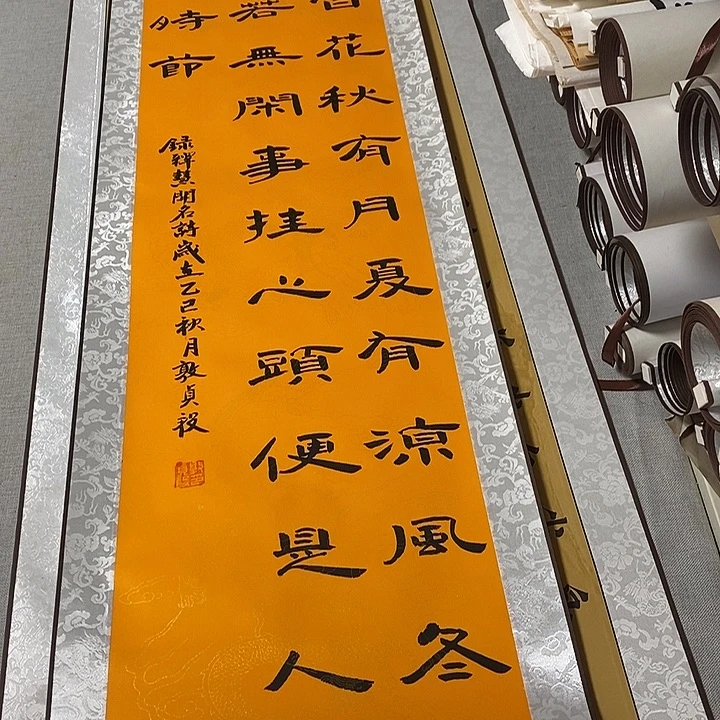 花秋有月夏有涼風冬
若無閑事挂心頭便是人
時節
録禪慧開名詩歲在乙巳秋月敦貞